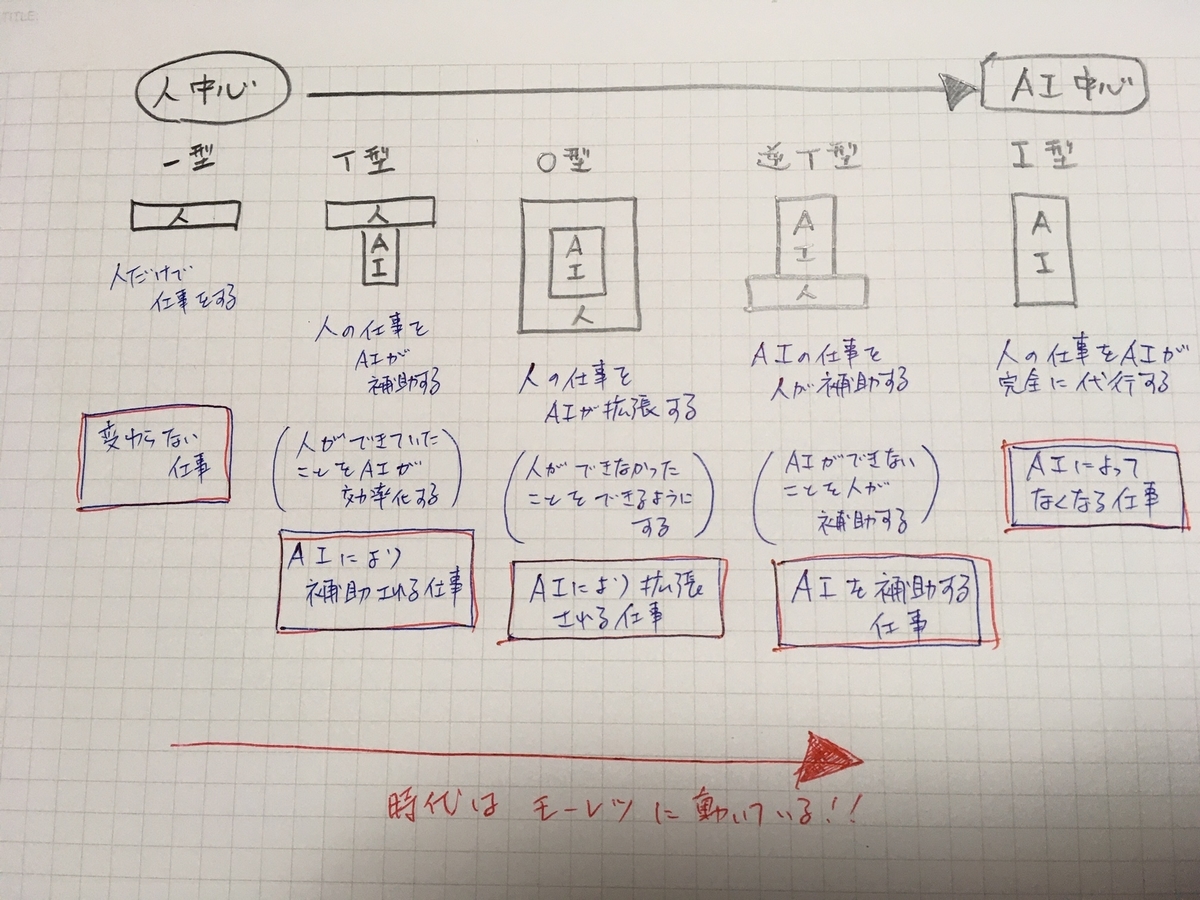 TITLE:
人中心
AI中心
一型
T型
O型
逆T型
I型
人
人
A
I
A
I
人
A
I
人
A
I
人だけで
仕事をする
人の仕事を
AIが
補助する
人の仕事を
AIが拡張する
AIの仕事を
人が補助する
人の仕事をAIが
完全に代行する
変わらない
仕事
(人ができていた
ことをAIが
効率化する)
(人ができなかった
ことをできるように
する)
(AIができない
ことを人が
補助する)
AIによって
なくなる仕事
AIにより
補助される仕事
AIにより拡張
される仕事
AIを補助する
仕事
時代はモーレツに動いている!!